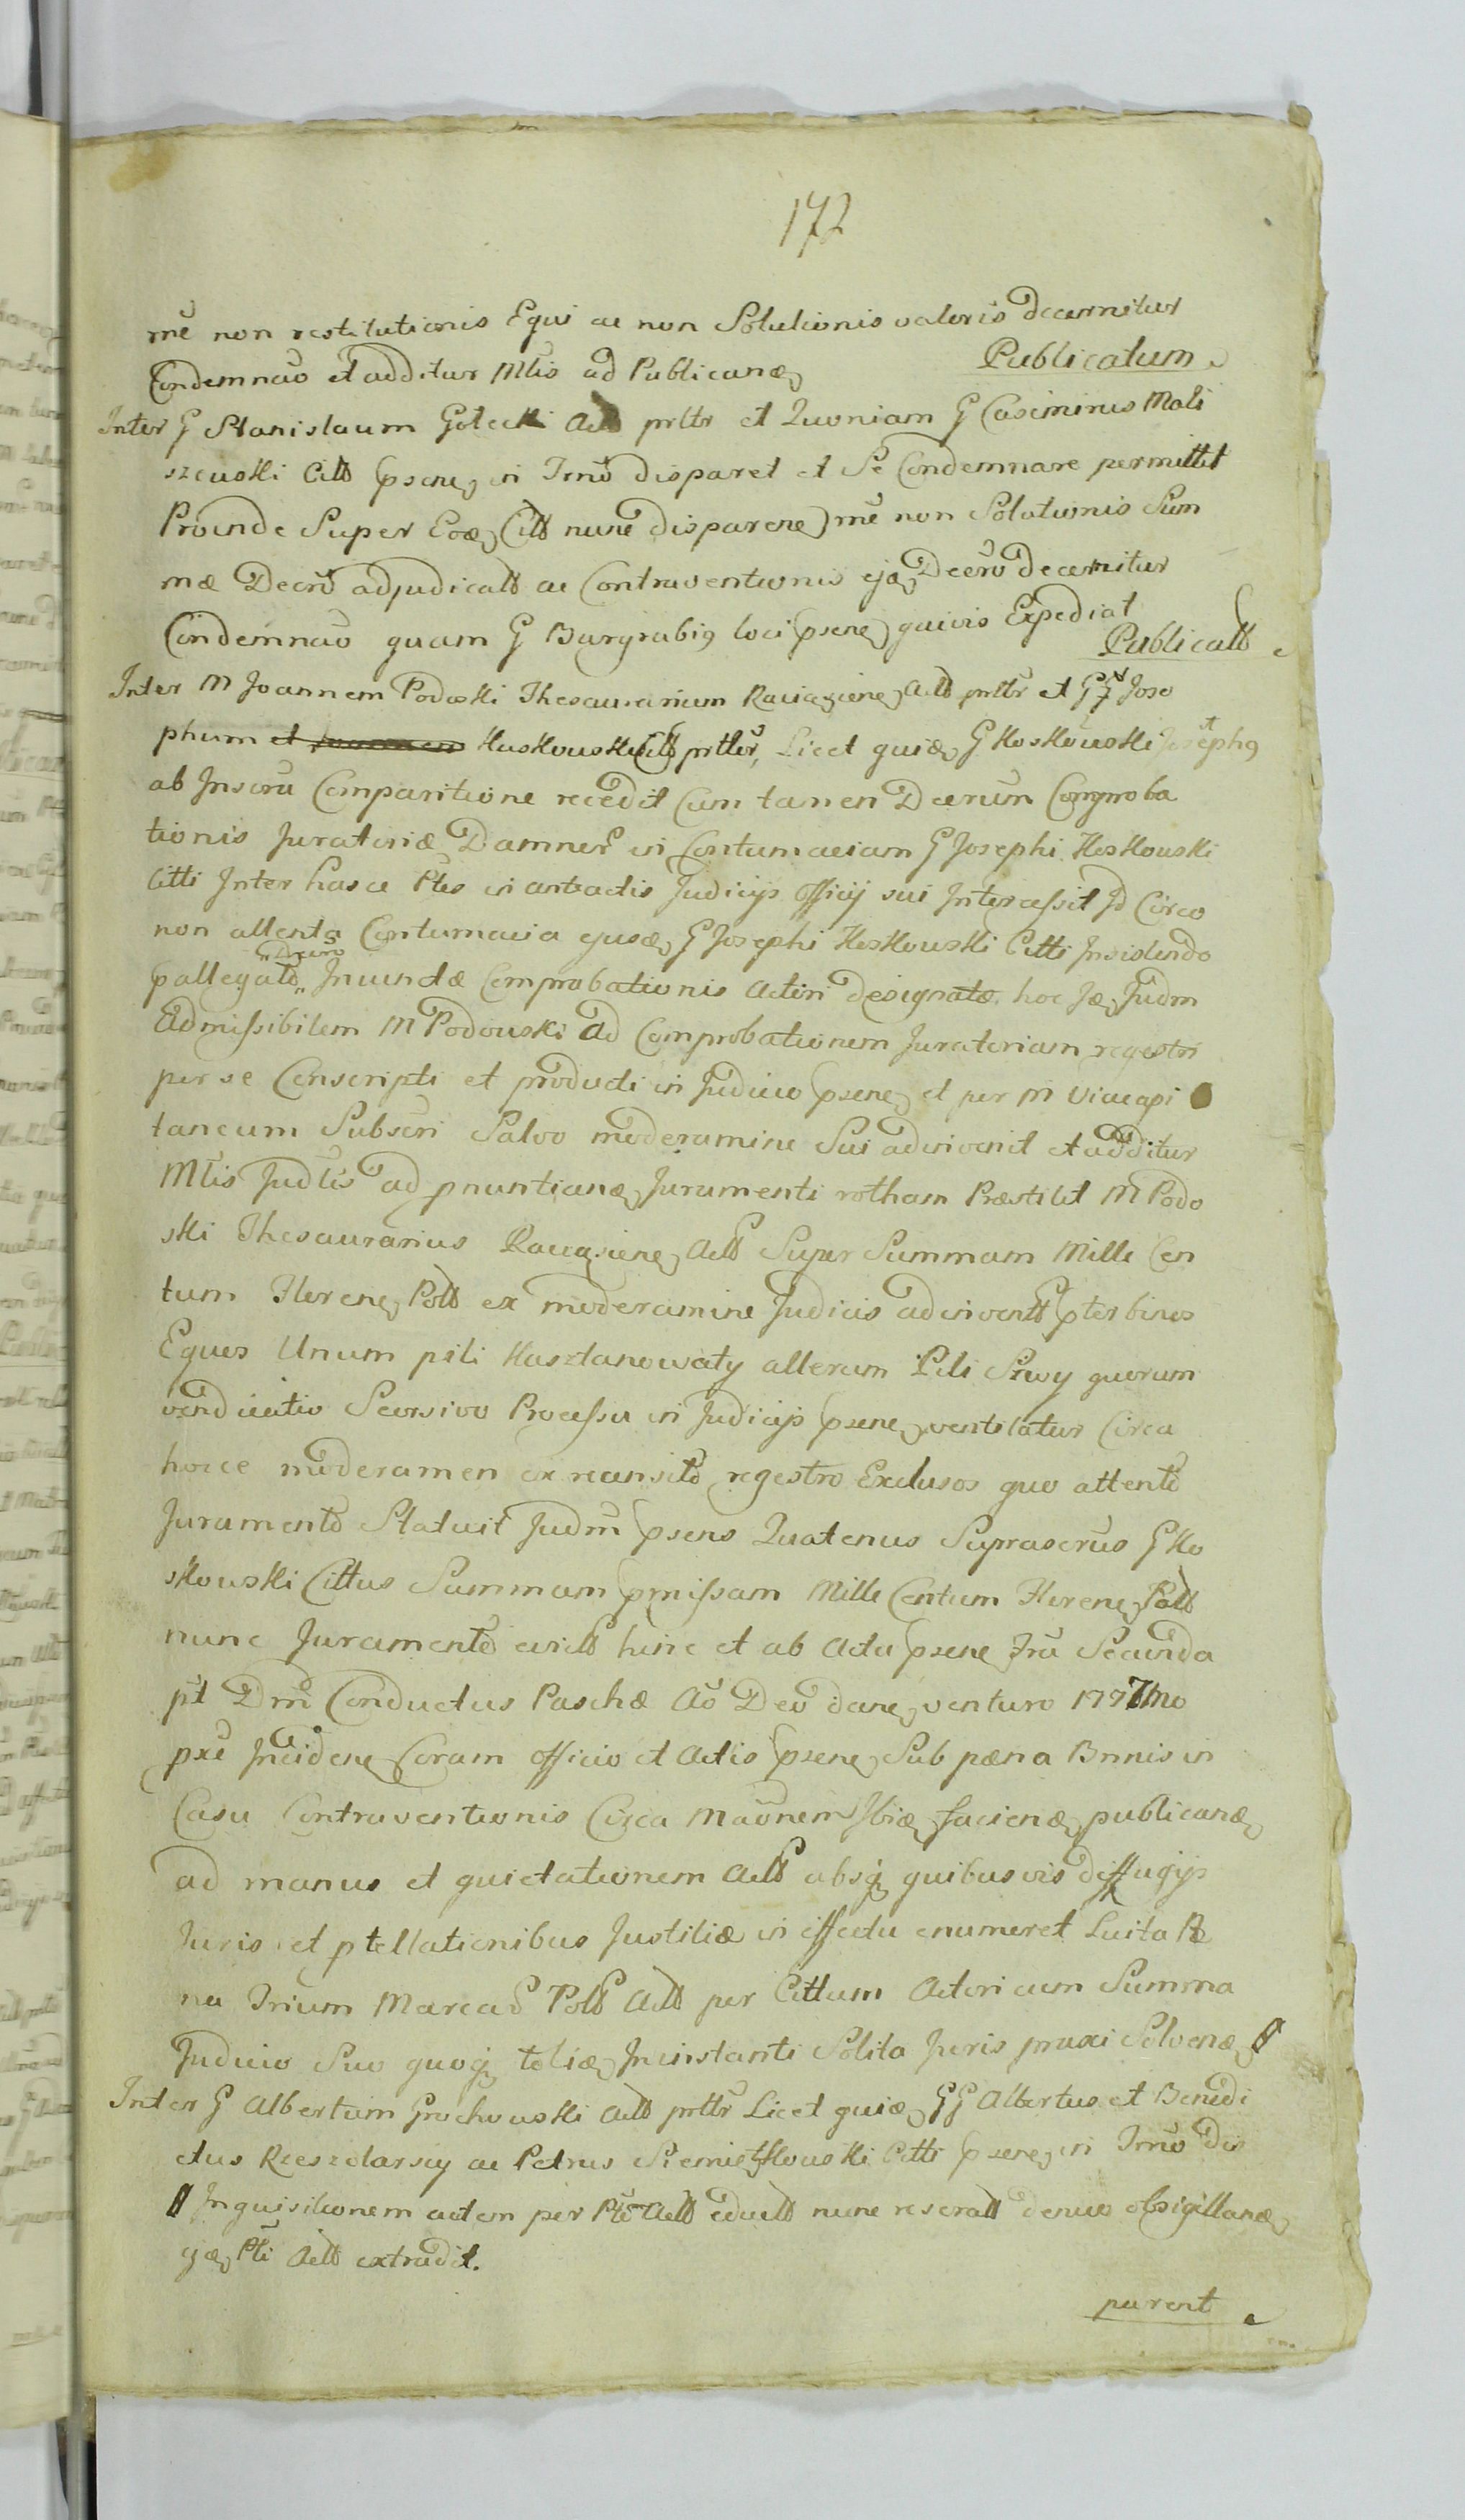 172
mē non restitutionis Equi ac non Solutionis valoris decernitur
Condemnāo et additur Mtis ad Publicanđ
Publicatum
Inter G Stanislaum Golecki Actt prttr et Quoniam G Casimirus Mali
szewski Citt psenę in Trno disparet et Se Condemnare permittit
Proinde Super Eođ Citt nunc disparenę mē non Solutionis Sum
mæ Decrō adjudicatt ac Contraventionis ejđ Decrō decernitur
Condemnāo quam G Burgrabi9 loci psenę quivis Expediat
Publicatt
Inter M Joannem Podoski Thesaurarium Ravazienę Actt prttr et G Jose
phum Koskowski Citt prtter, Licet quiđ G Koskowski Joseph9
ab Inscrū Comparitione recedit Cum tamen Decrum Comproba
tionis Juratoriæ Damnor in Contumaciam G Josephi Koskowski
Citti Inter hasce Ptes in anteactis Judicijs Officij sui Intercessit Id Circo
non attenta Contumacia ejusđ G Josephi Koskowski Citti Insistendo
pallegatō „Decrō„ Juundæ Comprobationis Actori designatæ hoc Id Judm
Admissibilem M Podowski ad Comprobationem Juratoriam regestri
per se Conscripti et producti in Judicio psenę et per M Vicecapi
taneum Subscri Salvo moderamine Sui adinvenit et additur
Mtis Judlis ad pnuntianđ Juramenti rotham Præstitit M Podo
ski Thesaurarius Ravazienę Actt Super Summam Mille Cen
tum Florenę Poltt ex moderamine Judicis adinventt pter binos
Equos Unum pili Kasztanowaty alterum Pili Siwy quorum
vendicatio Seorsivo Processu in Judicijs psenę ventilatur Circa
hocce moderamen ex recensitō regestro Exclusos quo attentō
Juramentō Statuit Judm psens Quatenus Suprascrus G Ko
skowski Cittus Summam pmissam Mille Centum Florenę Poltt
nunc Juramentō evictt hinc et ab Actu psene Fra Secunda
pt Dm Conductus Paschæ Aō Deo danę venturo 1777mo
pxe Incidenę Coram Officio et Actis psenę Sub pæna Bnnis in
Casu Contraventionis Circa Maōnem Ibiđ facienđ publicanđ
ad manus et quietationem Actt absq quibusvis diffugijs
Juris et ptellationibus Justitiæ in effectu enumeret Luita Pæ
na Trium Marcar Poltt Actt per Cittum Actori cum Summa
Judicio Suo quoq toliđ Ininstanti Solita Juris praxi Solvenđ #
Inter G Albertum Grochowski Actt prttr Licet quiđ GG Albertus et Benedi
ctus Rzeszotarscy ac Petrus Siemiątkowski Citti psenę in Trno dis
# Inquisitionem autem per Ptē Actt eductt nunc reseratt denuo obsigillanđ
ejđ Pti Actt extradit.
parent